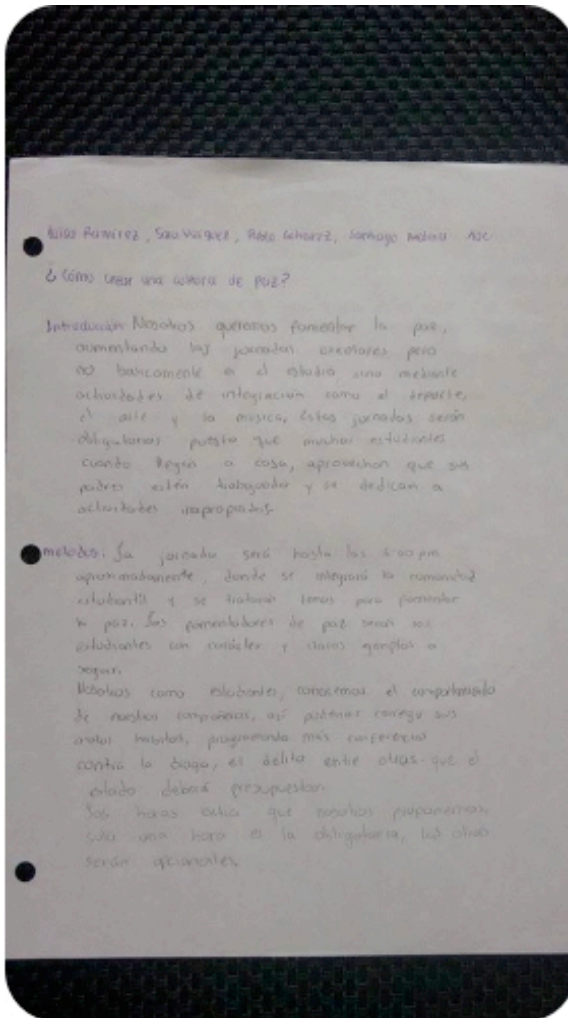 Ramírez, Sara Vasquez, Pablo Gutierrez, Santiago
¿Cómo crear una cultura de paz?
Introducción: Nosotros queremos fomentar la paz,
aumentando las jornadas escolares pero
no basicamente en el estudio sino mediante
actividades de integración como el deporte,
el arte y la musica, Estas jornadas serán
obligatorias puesto que muchos estudiantes
cuando llegan a casa, aprovechan que sus
padres están trabajando y se dedican a
actividades inapropiadas.
metodos: La jornada será hasta las 5:00 pm
aproximadamente, donde se integrará la comunidad
estudiantil y se trataran temas para fomentar
la paz. Los fomentadores de paz seran los
estudiantes con carácter y claros ejemplos a
seguir.
Nosotros como estudiantes, conocemos el comportamiento
de nuestros compañeros, así podemos corregir sus
malos habitos, programando más conferencias
contra la droga, el delito entre otras que el
estado deberá presupuestar.
Las horas extra que nosotros proponemos,
solo una hora es la obligatoria, las otras
serán opcionales.